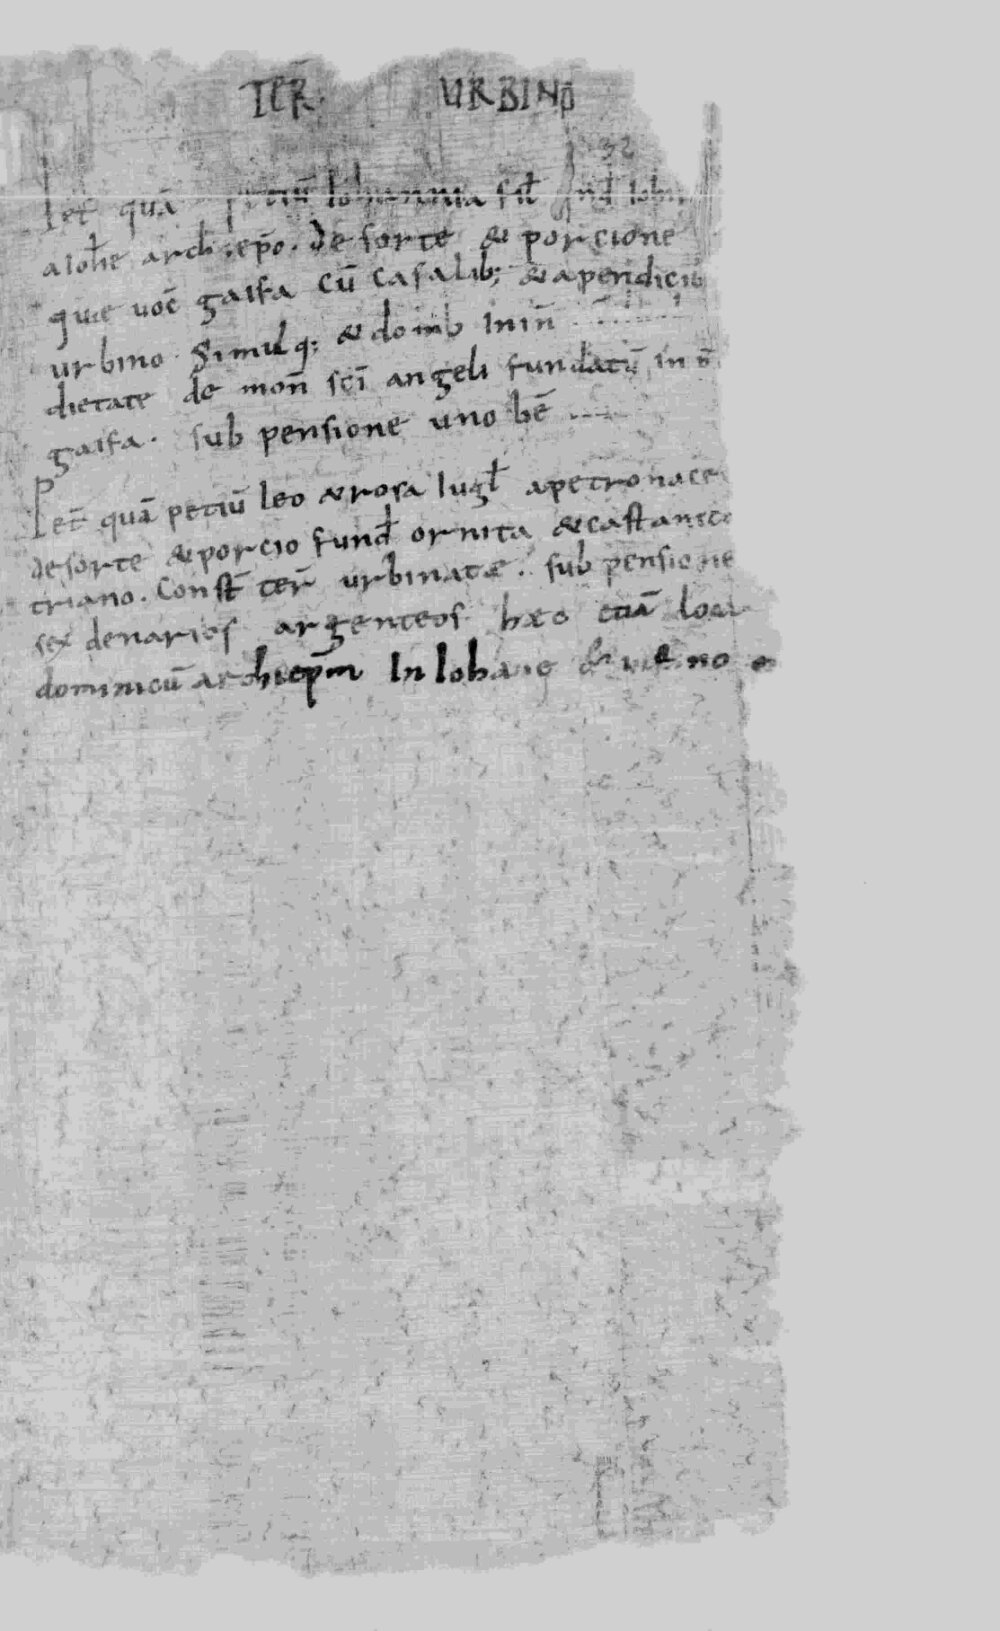 TER̄ URBINO
Pet̄ quā petiū Iohannia fil̄
a Ioh̄e archiep̄o. De sorte & porcione
que uoc̄ gaifa cū casalib; & apendicib
urbino. Simulq; & domib In in̄
dietate de mon̄ sc̄i angeli fundatū in
gaifa. sub pensione uno
Pet̄ quā petiū leo & rosa Iugl̄ a petronace
de sorte & porcio fund̄ ornita &
triano. Const̄ ter̄ urbinate. sub pensione
sex denarios argenteos hec etiā
dominicū archiep̄m In